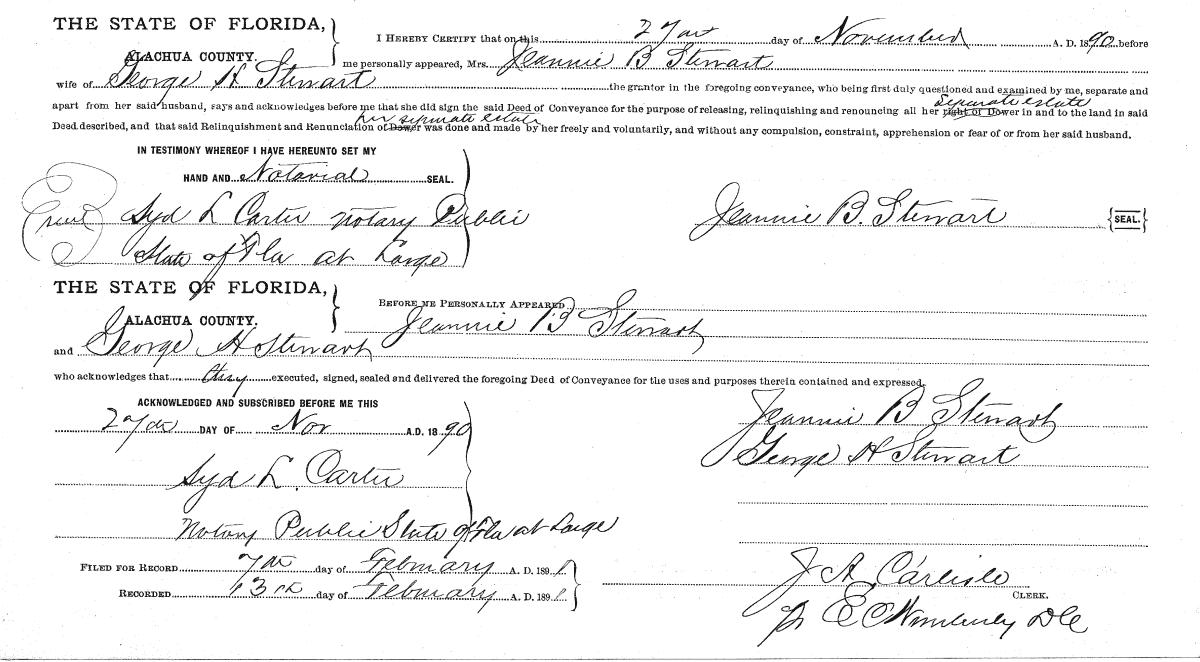 THE STATE OF FLORIDA,
ALACHUA COUNTY.
I HEREBY CERTIFY that on this 27th day of November A. D. 1890 before
me personally appeared, Mrs. Jeannie B Stewart
wife of George H Stewart the grantor in the foregoing conveyance, who being first duly questioned and examined by me, separate and
separate estate
apart from her said husband, says and acknowledges before me that she did sign the said Deed of Conveyance for the purpose of releasing, relinquishing and renouncing all her right of Dower in and to the land in said
her separate estate
Deed described, and that said Relinquishment and Renunciation of Dower was done and made by her freely and voluntarily, and without any compulsion, constraint, apprehension or fear of or from her said husband.
IN TESTIMONY WHEREOF I HAVE HEREUNTO SET MY
HAND AND Notarial SEAL.
Syd L Carter Notary Public
Jeannie B. Stewart {SEAL.}
State of Fla at Large
THE STATE OF FLORIDA,
ALACHUA COUNTY.
BEFORE ME PERSONALLY APPEARED
Jeannie B Stewart
and George H Stewart
who acknowledges that they executed, signed, sealed and delivered the foregoing Deed of Conveyance for the uses and purposes therein contained and expressed.
ACKNOWLEDGED AND SUBSCRIBED BEFORE ME THIS
27th DAY OF Nov A.D. 1890
Jeannie B Stewart
George H Stewart
Syd L. Carter
Notary Public State of Fla at Large
FILED FOR RECORD 7th day of February A. D. 1891
RECORDED 13th day of February A. D. 1891
J A Carlisle
CLERK.
E C Wimberly DC